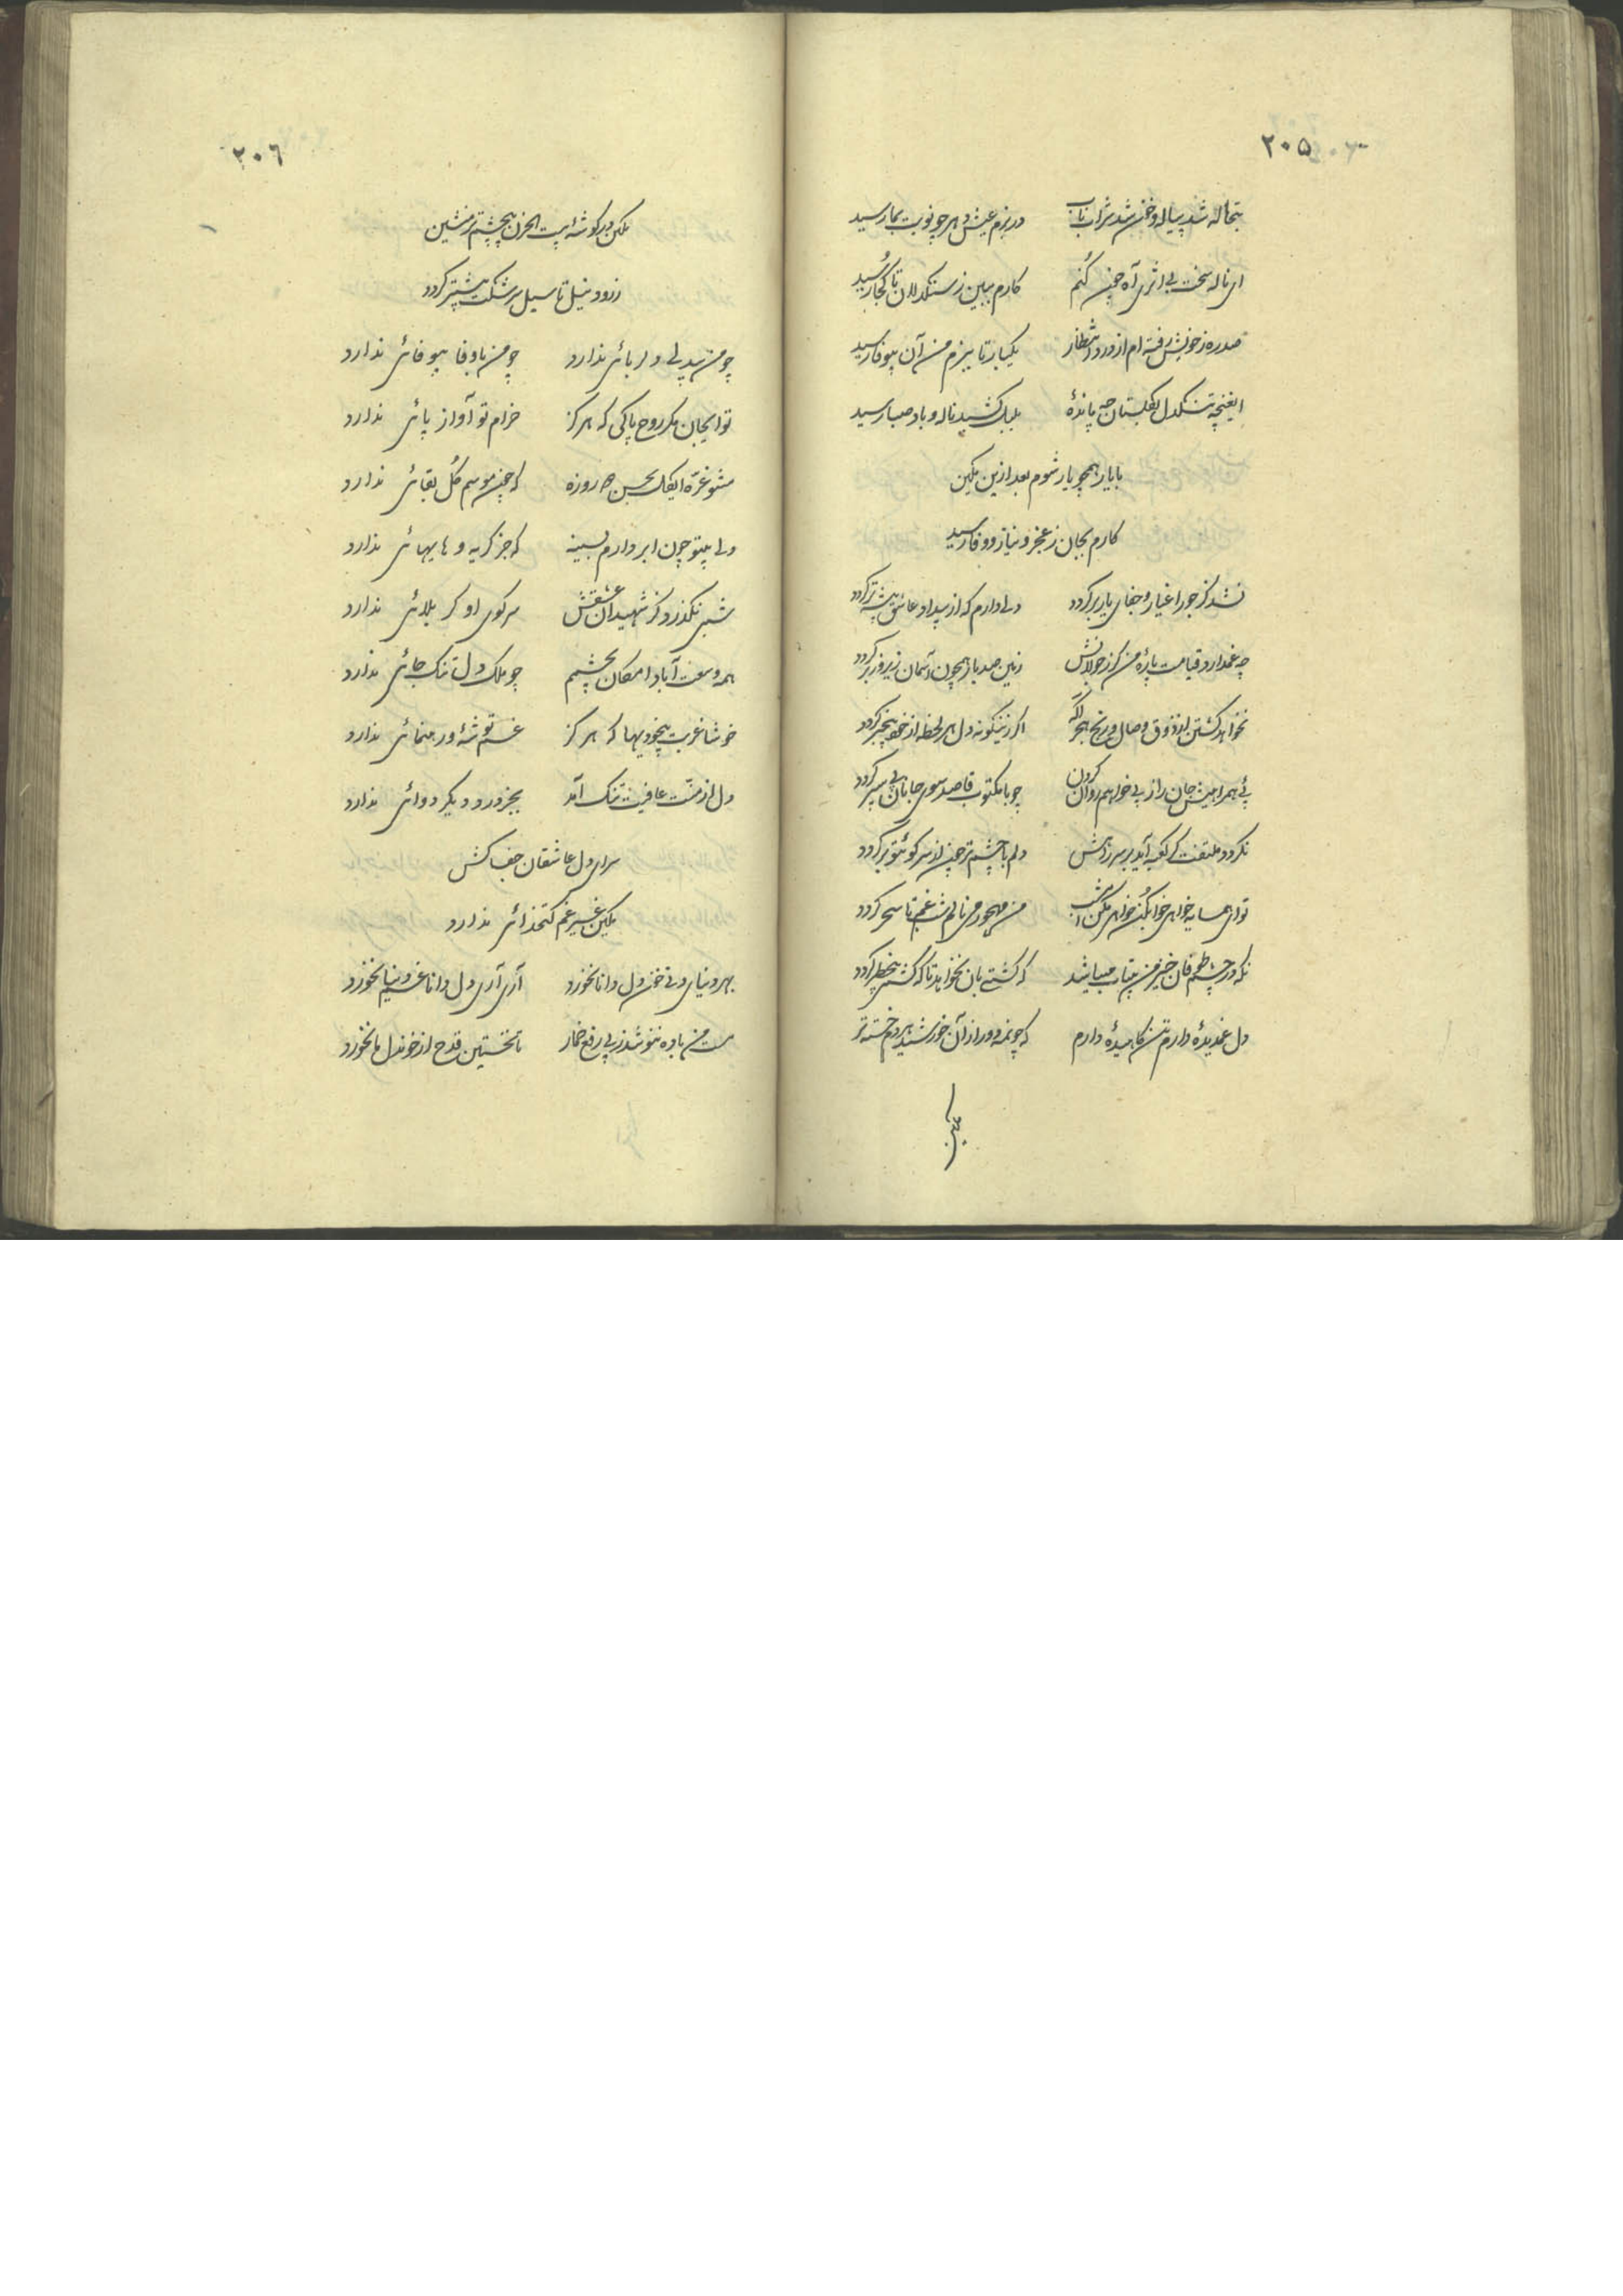 ۲۰۵
تبخاله شد پیاله و خون شد شراب ناب در بزم عیش دهر چو نوبت بما رسید
ای ناله سخت بی اثری آه چون کنم کارم ببین ز سنگدلان تا کجا رسید
صدره ز خویش رفته ام از درد انتظار یکبار تا ببزم من آن بیوفا رسید
ایغنچه تنگدل بگلستان چه مانده بلبل کشید ناله و باد صبا رسید
با یار همچو یار شوم بعد ازین مکین
کارم بجان ز عجز و نیاز و وفا رسید
نشد کز جور اغیار و جفای یار برگردد دلی دارم که از بیداد عاشق پیشه تر گردد
چه غمدارد قیامت پاره من کز جولانش زمین صد بار همچون آسمان زیر و زبر گردد
نخواهد گشتن از ذوق وصال و رنج هجر آگه اگر زینگونه دل هر لحظه از خود بیخبر گردد
پی همراهیش جان را ز پی خواهم روان کردن چو با مکتوب قاصد سوی جانان پی سپر گردد
نگردد ملتفت گر کعبه آید بر سر راهش دلم با چشم تر چون از سر کوی تو برگردد
تو ای همسایه خواهی خواب کن خواهی مکن امشب من مهجور می نالم شب غم تا سحر گردد
که در چشم طوفان خیز من بیتاب میباشد که کشتی بان نخواهد تا که کشتی پر خطر گردد
دل غمدیدهٔ دارم تن کاهیدهٔ دارم که چون مه دور از آن خورشید هر دم خسته تر
مکین
۲۰۶
مکین در گوشهٔ بیت الحزن با چشم تر منشین
ز رود نیل تا سیل سرشکت بیشتر گردد
چو من بیدلی دلربائی ندارد چو من باوفا بیوفائی ندارد
تو ایجان مگر روح پاکی که هرگز خرام تو آواز پائی ندارد
مشو غره ایگل بحسن دو روزه که چون موسم گل بقائی ندارد
دلی بیتو چون ابر دارم بسینه که جز گریه و هایهائی ندارد
شبی نگذرد کز شهیدان عشقش سر کوی او کربلائی ندارد
همه وسعت آباد امکان بچشمم چو ملک دل تنگ جائی ندارد
خوشا غربت بیخودیها که هرگز غم توشه و رهنمائی ندارد
دل از منت عافیت تنگ آمد بجز درد دیگر دوائی ندارد
سرای دل عاشقان جفاکش
مکین غیر غم کتخدائی ندارد
بهر دنیای دنی خون دل دانا نخورد آری آری دل دانا غم دنیا نخورد
مست من باده ننوشد ز پی رفع خمار تا نخستین قدح از خون دل ما نخورد